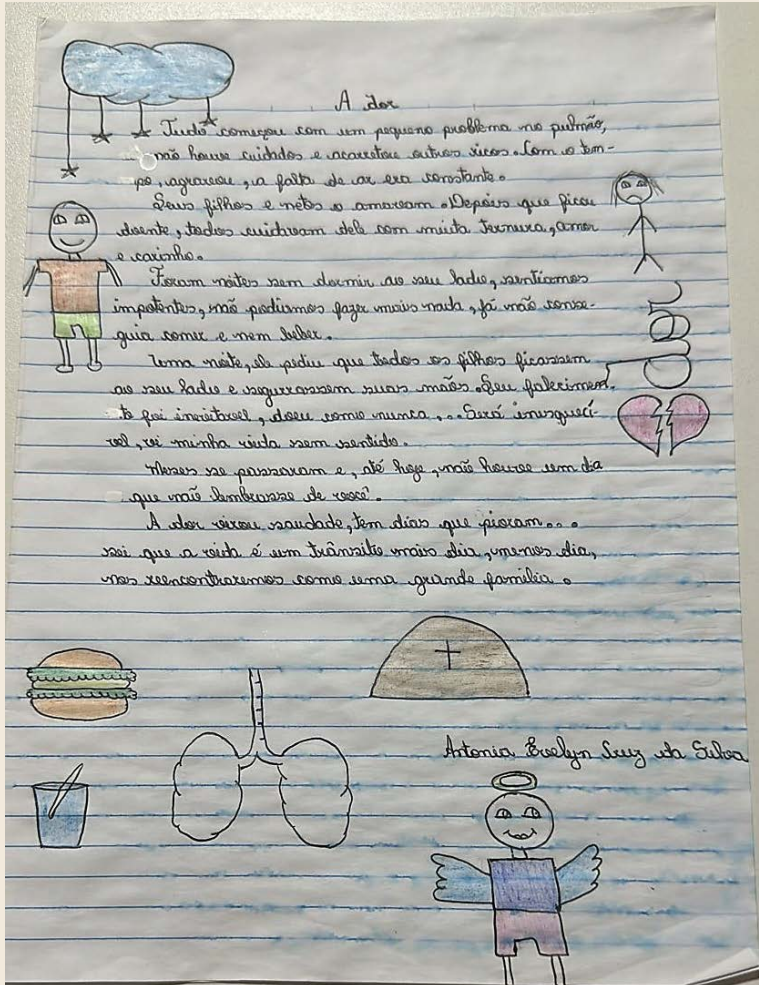 A dor
Tudo começou com um pequeno problema no pulmão,
não houve cuidados e acarretou outros ricos. Com o tem-
po, agravou, a falta de ar era constante.
Seus filhos e netos o amavam. Depois que ficou
doente, todos cuidavam dele com muita ternura, amor
e carinho.
Foram noites sem dormir ao seu lado, sentíamos
impotentes, não podíamos fazer mais nada, já não conse-
guia comer e nem beber.
Uma noite, ele pediu que todos os filhos ficassem
ao seu lado e segurassem suas mãos. Seu falecimen-
to foi inevitável, doeu como nunca,... Será inesquecí-
vel, vi minha vida sem sentido.
Meses se passaram e, até hoje, não houve um dia
que não lembrasse de você.
A dor virou saudade, tem dias que pioram...
sei que a vida é um trânsito mais dia, menos dia,
nos reencontraremos como uma grande família.
Antonia Evelyn Cruz da Silva